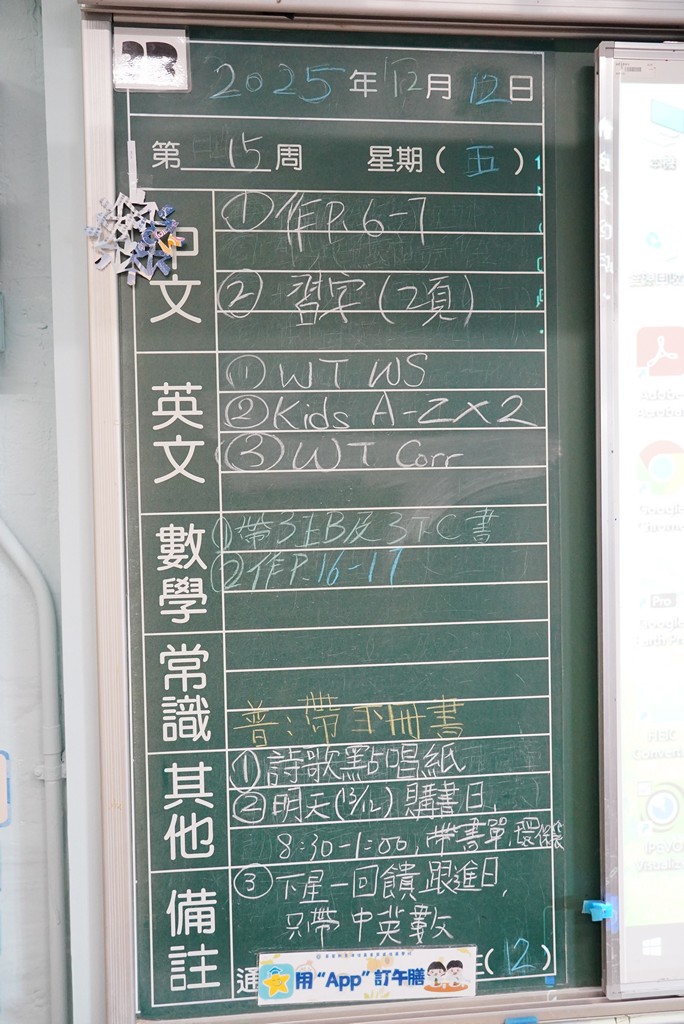 2025年12月12日
第15周 星期(五)
中文
①作P.6-7
②習字(2頁)
英文
①WT WS
②Kids A-Z×2
③WT Corr
數學
①帶3上B及3下C書
②作P.16-17
常識
普:帶下冊書
其他
①詩歌點唱紙
②明天(13/12)購書日,
8:30-1:00,帶書單,環保袋
備註
③下星一回饋跟進日,
只帶中英數
通
(12)
用“App”訂午膳
Pro